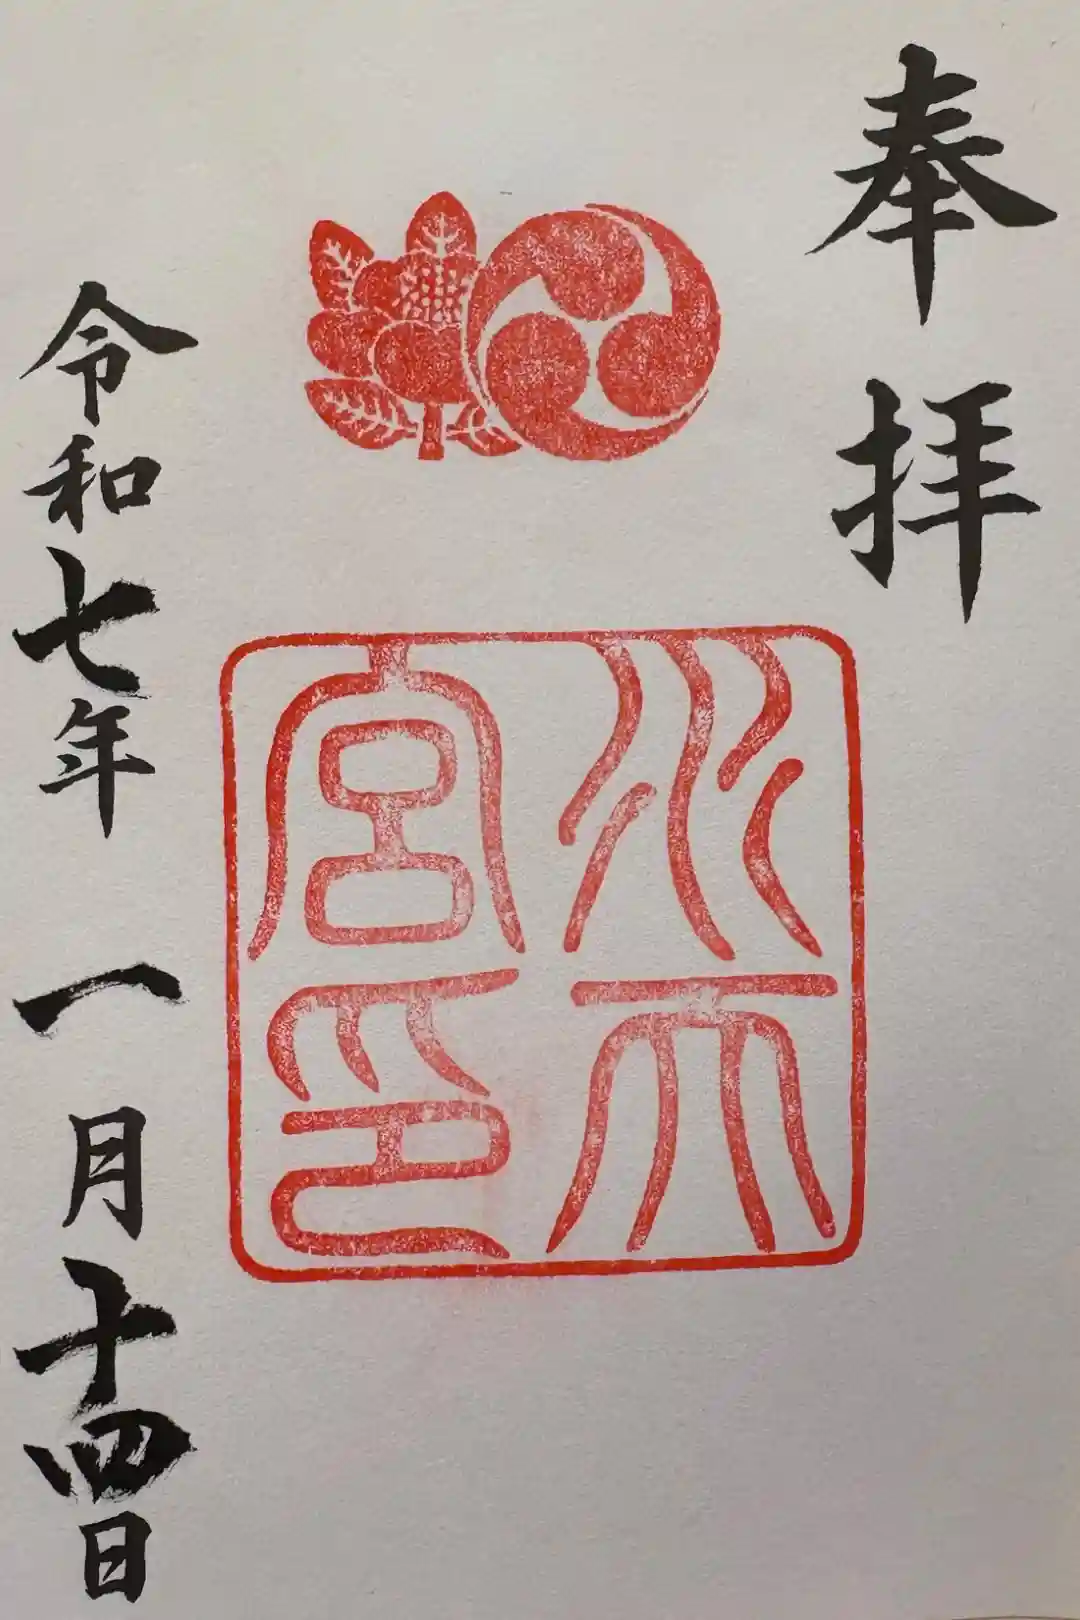 奉拝
水天
宮印
令和七年一月十四日